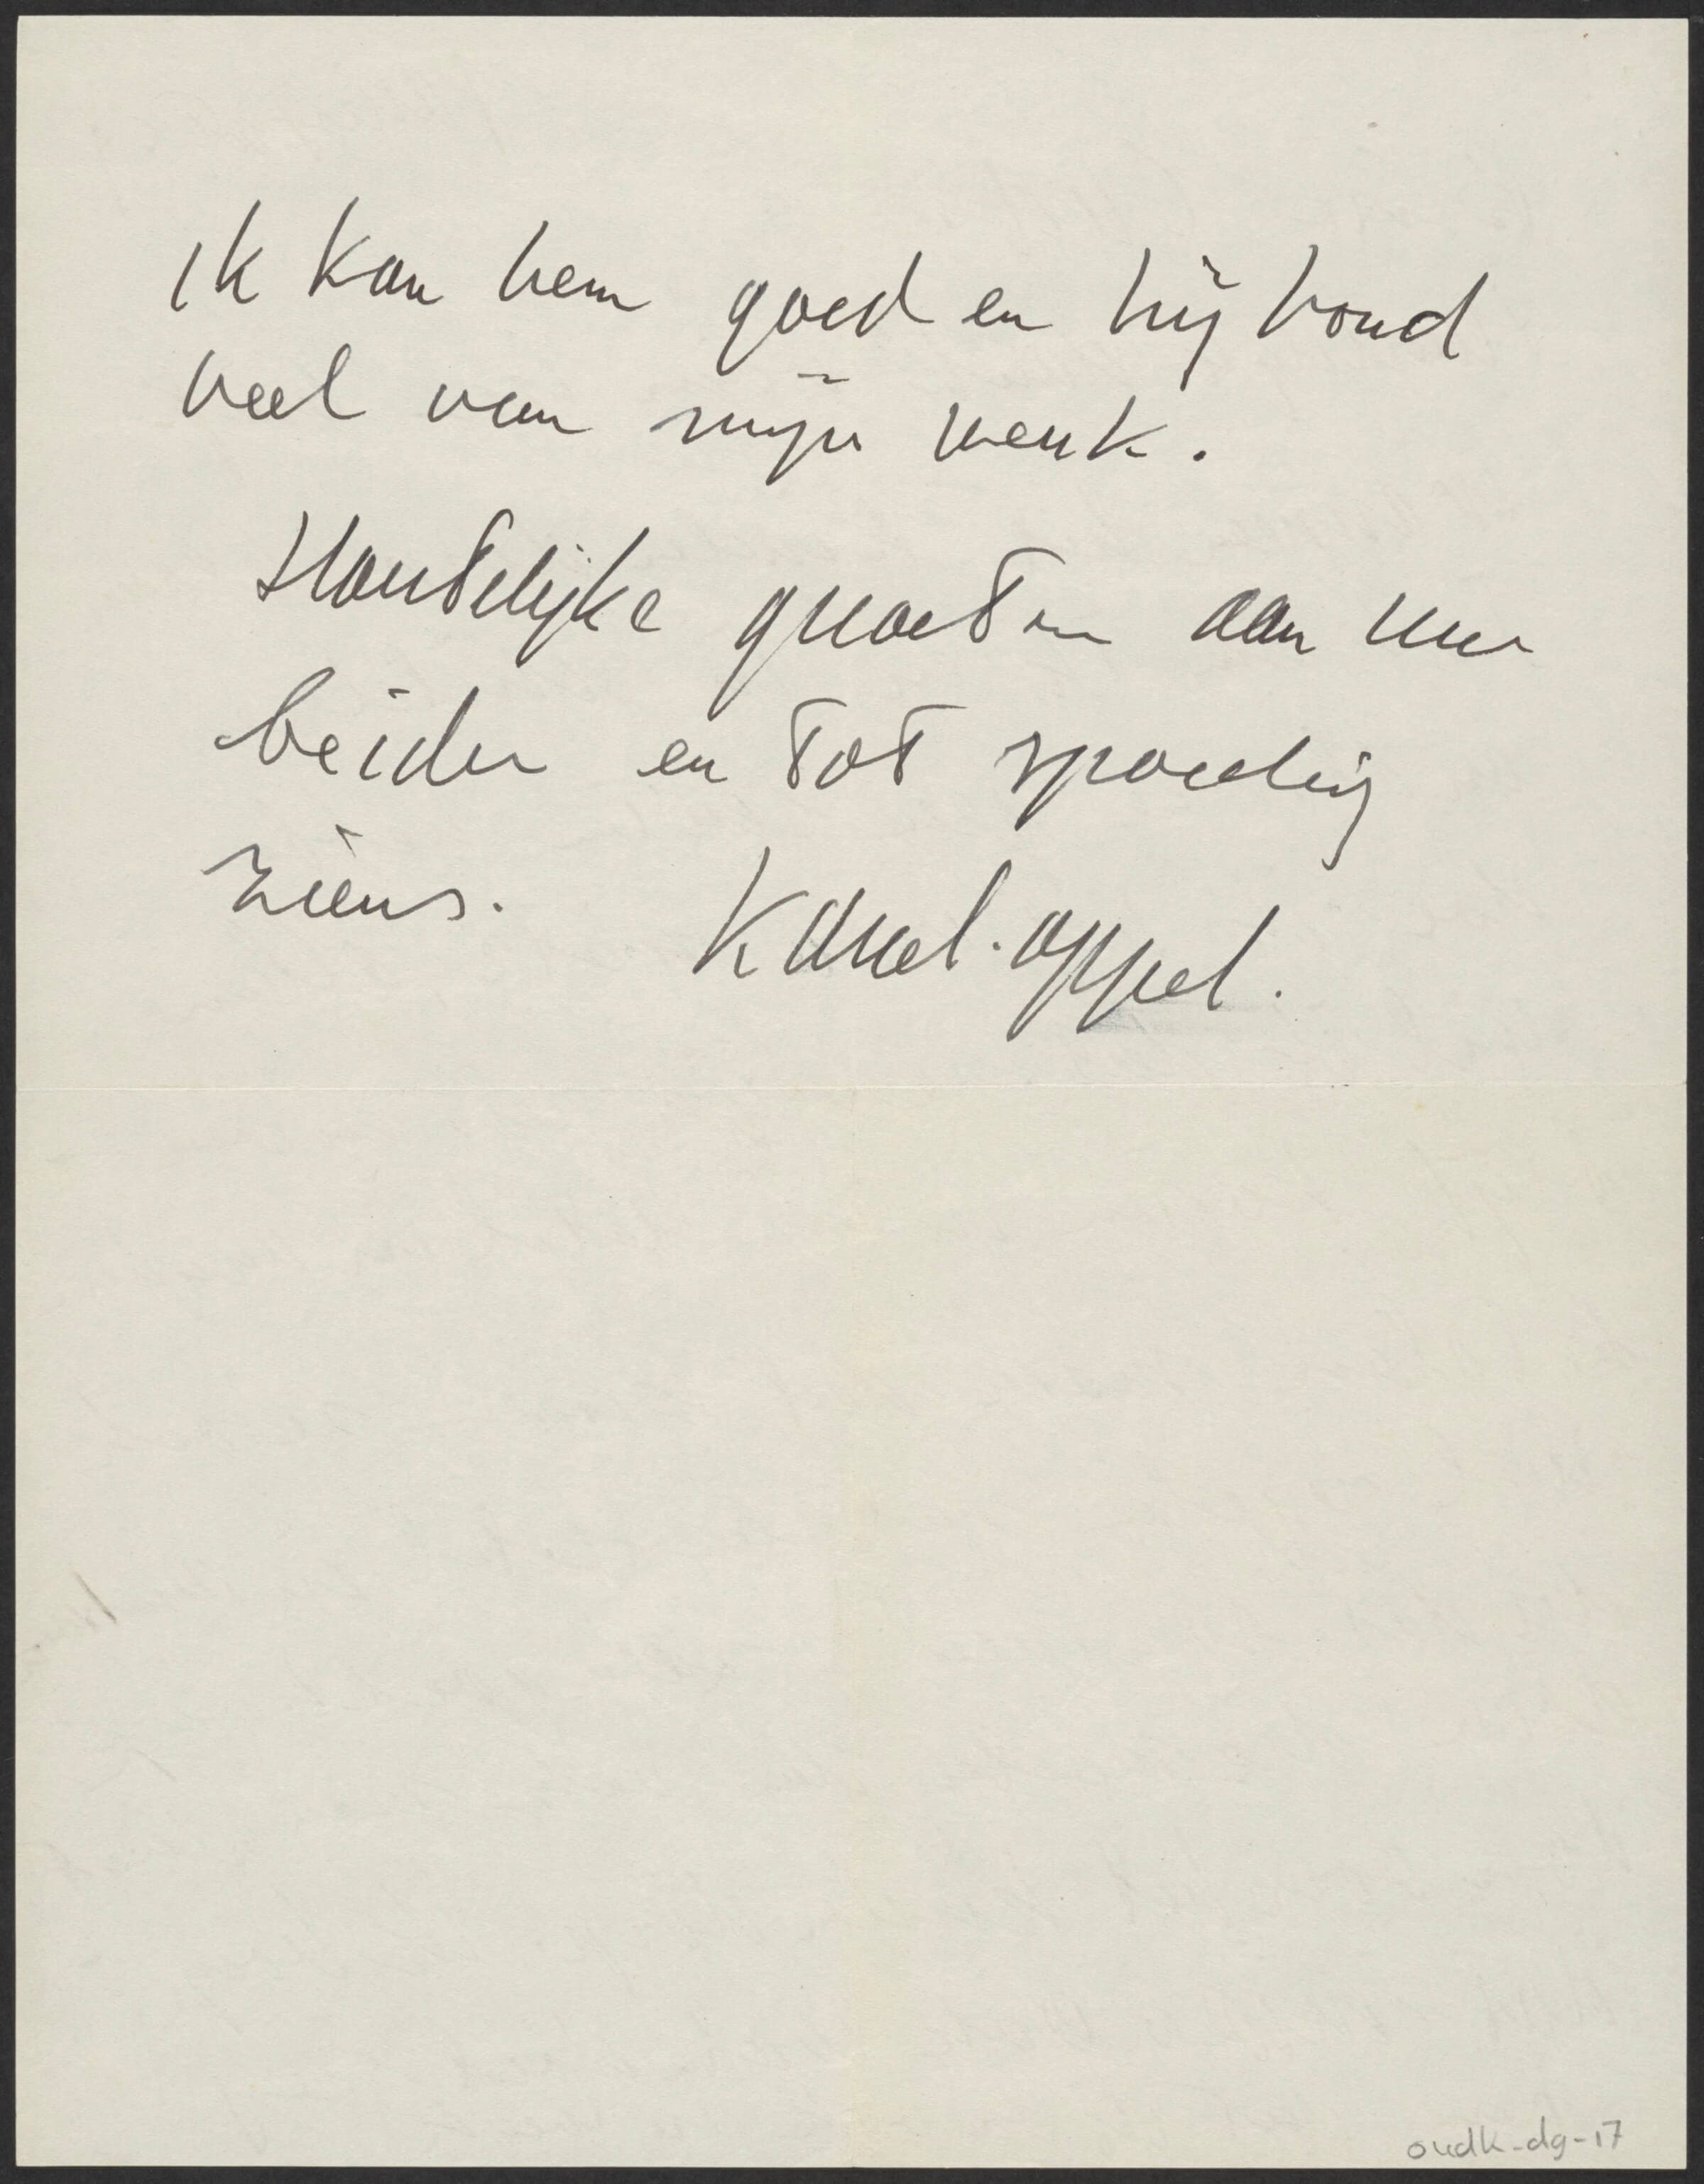 ik kan hem goed en hij houd
veel van mijn werk.
Hartelijke groeten aan uw
beider en tot spoedig
ziens. Karel. appel.
oudk-dg-17